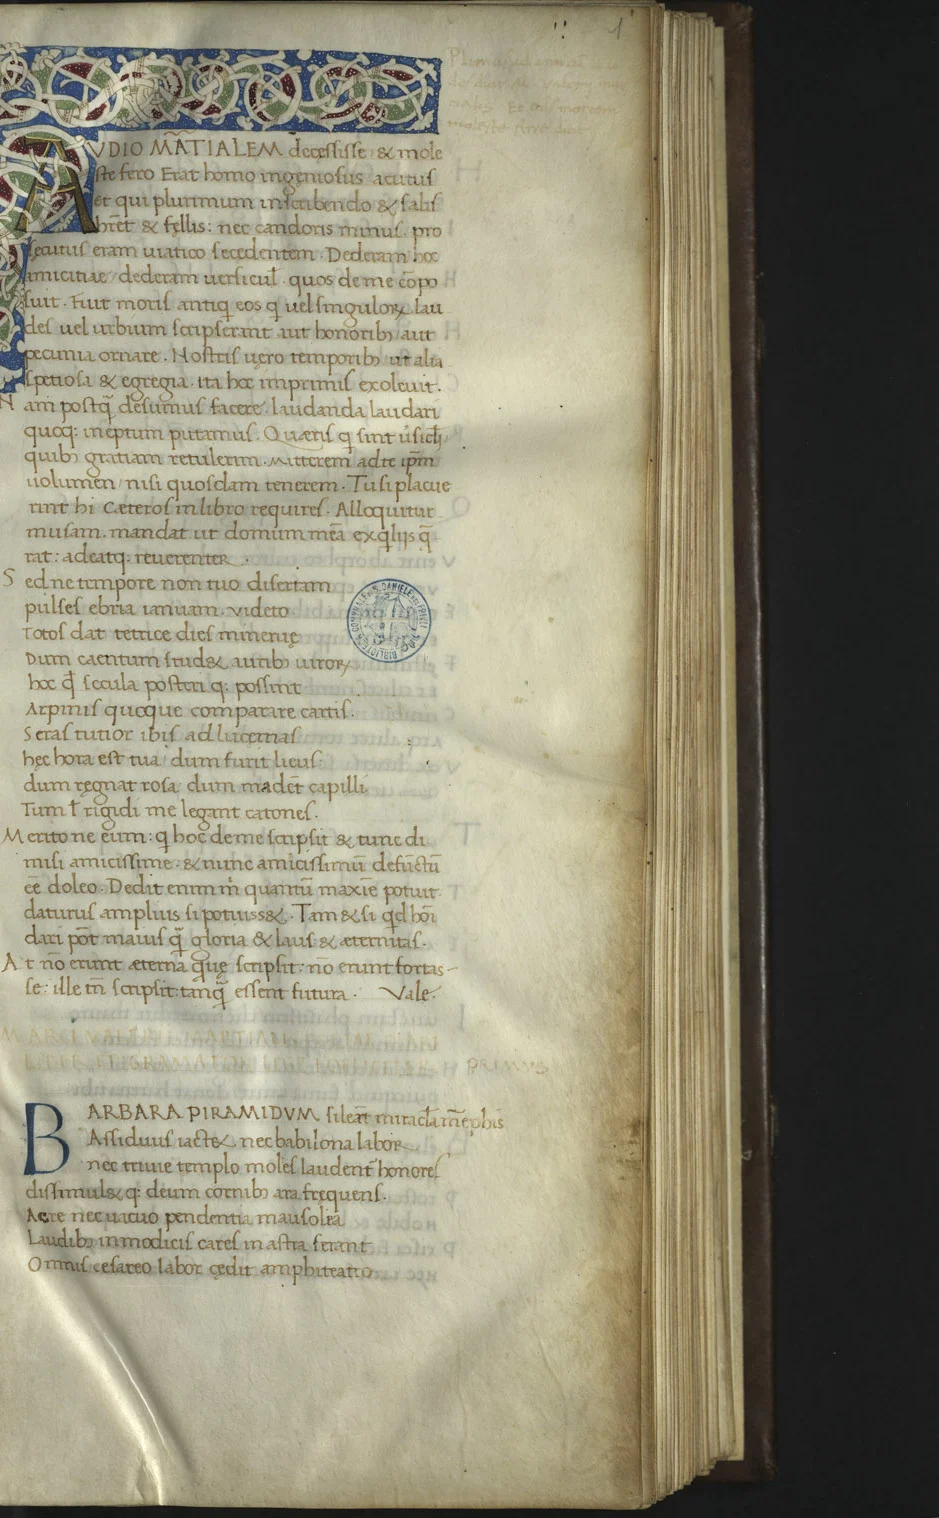 1
AVDIO MARTIALEM decessisse & mole
ste fero Erat homo ingeniosus acutus
et qui plurimum inscribendo & salis
hret & fellis: nec candoris minus. pro
secutus eram uiatico secedentem. Dederam hoc
amicitiae dederam uersicul quos de me cōpo
suit. Fuit moris antiq eos q uel singuloꝝ lau
des uel urbium scripserant aut honorib aut
pecunia ornare. Nostris uero temporib ut alia
spetiosa & egregia. ita hoc imprimis exoleuit.
Nam postq̄ desumus facere laudanda laudari
quoq: ineptum putamus. Quæris q sint ūsicli
quib gratiam retulerim. Mitterem ad te ipm
uolumen nisi quosdam tenerem. Tu si placue
rint hi Cæteros in libro requires. Alloquitur
musam. mandat ut domum meā exqliis q̄
rat: adeatq: reuerenter.
Sed ne tempore non tuo disertam
pulses ebria ianuam uideto
Totos dat tetrice dies mineruę
Dum caentum stud& aurib uiroꝝ
hoc q̄ secula posteri q: possint
Arpinis quoque comparare cartis.
Seras tutior ibis ad lucernas
hec hora est tua dum furit lieus:
dum ręgnat rosa dum madēt capilli
Tum ł rigidi me legant catones.
Merito ne eum: q hoc de me scripsit & tunc di
misi amicissime. & nunc amicissimū defūctū
eē doleo. Dedit enim m quantū maxīe potuit
daturus amplius si potuiss&. Tam &si qd hoī
dari pōt maius q̄ gloria & laus & æternitas.
At nō erunt æterna quę scripsit: nō erunt fortas-
se: ille tn̄ scripsit: tanq̄ essent futura. Vale.
MARCI VALERI MARTIALIS
PRIMVS
BARBARA PIRAMIDVM sileāt miracla mēphis
Assiduus iact& nec babilona labor
nec triuie templo moles laudent honores
dissimul& q: deum cornib ara frequens.
Aere nec uacuo pendentia mausolea
Laudib inmodicis cares in astra ferant
Omnis cesareo labor cędit amphiteatro
BIBLIOTECA COMUNALE DI S. DANIELE DEL FRIULI